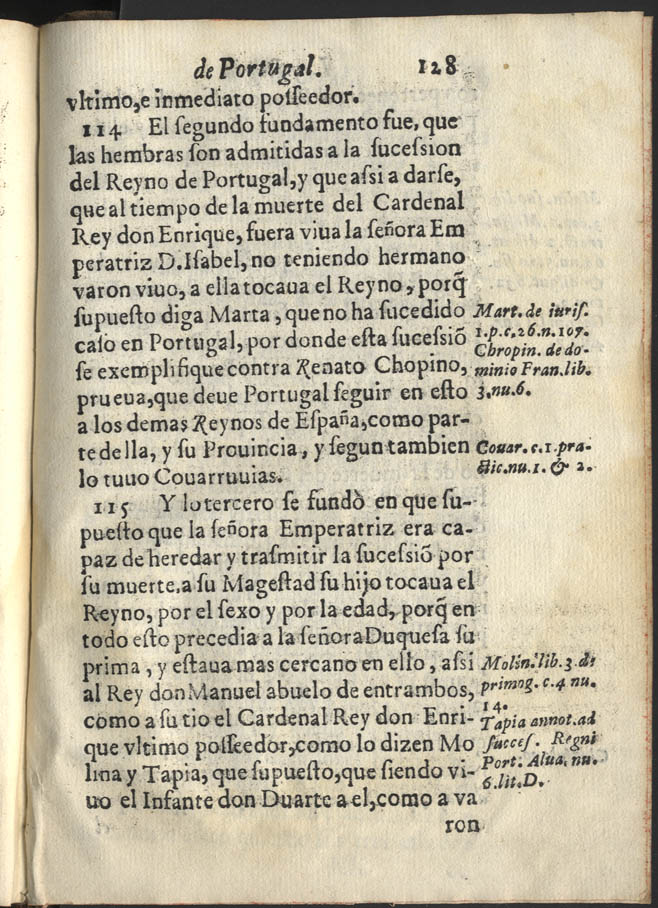 de Portugal. 128
vltimo, e inmediato posseedor.
114 El segundo fundamento fue, que
las hembras son admitidas a la sucession
del Reyno de Portugal, y que assi a darse,
que al tiempo de la muerte del Cardenal
Rey don Enrique, fuera viua la señora Em
peratriz D. Isabel, no teniendo hermano
varon viuo, a ella tocaua el Reyno, porq̃
supuesto diga Marta, que no ha sucedido
caso en Portugal, por donde esta sucessiõ
se exemplifique contra Renato Chopino,
prueua, que deue Portugal seguir en esto
a los demas Reynos de España, como par-
te della, y su Prouincia, y segun tambien
lo tuuo Couarruuias.
Mart. de iuris.
1.p.c.26.n.107.
Chropin. de do-
minio Fran. lib.
3.nu.6.
Couar. c.1.pra-
ctic.nu.1. & 2.
115 Y lo tercero se fundò en que su-
puesto que la señora Emperatriz era ca-
paz de heredar y trasmitir la sucessiõ por
su muerte, a su Magestad su hijo tocaua el
Reyno, por el sexo y por la edad, porq̃ en
todo esto precedia a la señora Duquesa su
prima, y estaua mas cercano en ello, assi
al Rey don Manuel abuelo de entrambos,
como a su tio el Cardenal Rey don Enri-
que vltimo posseedor, como lo dizen Mo
lina y Tapia, que supuesto, que siendo vi-
uo el Infante don Duarte a el, como a va
ron
Molin. lib. 3. de
primog. c.4 nu.
14.
Tapia annot. ad
succes. Regni
Port. Alua. nu.
6.lit.D.